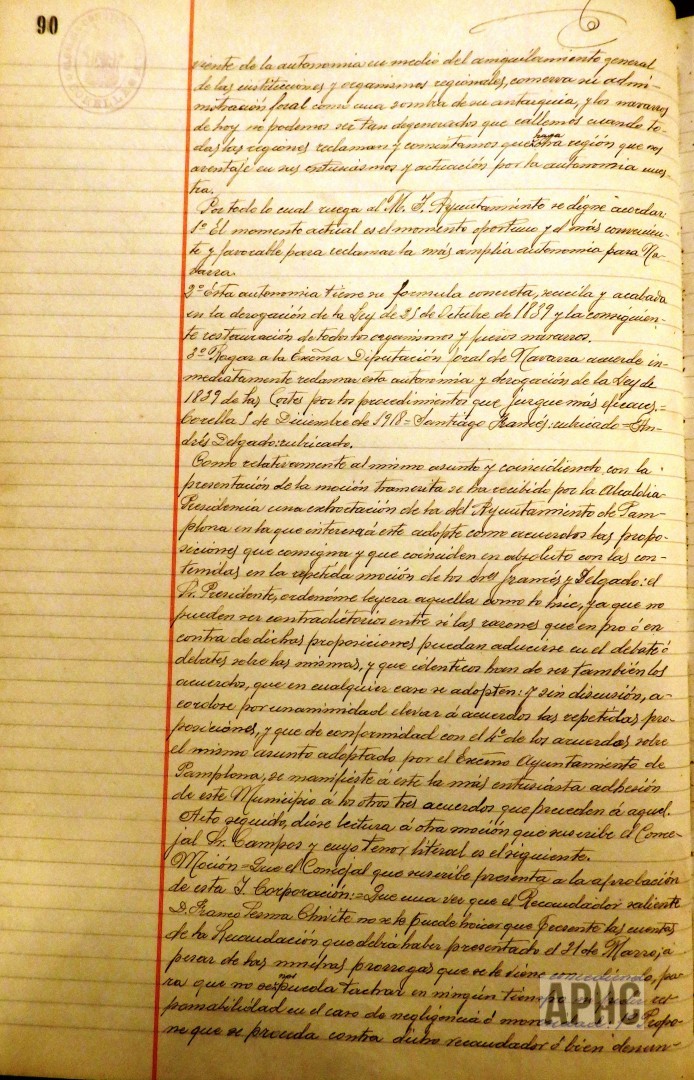 90
viente de la autonomia en medio del aniquilamiento general
de las instituciones y organismos regionales, conserva su admi-
nistración foral como una sombra de su autarquia, y los navarros
de hoy no podemos ser tan degenerados que callemos cuando to-
das las regiones reclaman y consintamos que haya otra región que nos
aventaje en sus entusiasmos y actuación por la autonomia nues-
tra.
Por todo lo cual ruega al M. I. Ayuntamiento se digne acordar:
1º El momento actual es el momento oportuno y el más convenien-
te y favorable para reclamar la más amplia autonomia para Na-
varra.
2º Esta autonomia tiene su formula concreta, sencilla y acabada
en la derogación de la Ley de 25 de Octubre de 1839 y la consiguien-
te restauración de todos los organismos y fueros navarros.
3º Rogar a la Excma Diputación foral de Navarra acuerde in-
mediatamente reclamar esta autonomia y derogación de la Ley de
1839 de las Cortes por los procedimientos que juzgue más eficaces.=
Corella 5 de Diciembre de 1918= Santiago Francés: rubricado= An-
drés Delgado: rubricado.
Como relativamente al mismo asunto y coincidiendo con la
presentación de la moción transcrita se ha recibido por la Alcaldia
Presidencia una exhortación de la del Ayuntamiento de Pam-
plona en la que interesa á este adopte como acuerdos las propo-
siciones que consigna y que coinciden en absoluto con las con-
tenidas en la repetida moción de los Sres Francés y Delgado: el
Sr. Presidente, ordenóme leyera aquella como lo hice, ya que no
pueden ser contradictorios entre si las razones que en pro ó en
contra de dichas proposiciones puedan aducirse en el debate ó
debates sobre las mismas, y que identicos han de ser también los
acuerdos, que en cualquier caso se adopten: y sin discusión, a-
cordose por unanimidad elevar á acuerdos las repetidas pro-
posiciones, y que de conformidad con el 4º de los acuerdos sobre
el mismo asunto adoptado por el Excmo Ayuntamiento de
Pamplona, se manifieste á éste la más entusiasta adhesión
de este Municipio á los otros tres acuerdos que preceden á aquel.
Acto seguido, dióse lectura á otra moción que suscribe el Conce-
jal Sr. Campos y cuyo tenor literal es el siguiente.
Moción= Que el Concejal que suscribe presenta a la aprobación
de esta I. Corporación:= Que una vez que el Recaudador saliente
D. Franco Sesma Chivite no se le puede hacer que presente las cuentas
de la Recaudación que debia haber presentado el 31 de Marzo, á
pesar de las prorrogas que se le viene concediendo, pa-
ra que no se nos pueda tachar en ningún tiempo res-
ponsabilidad en el caso de negligencia ó morosidad Propo-
ne que se proceda contra dicho recaudador ó bien denun-
APHC